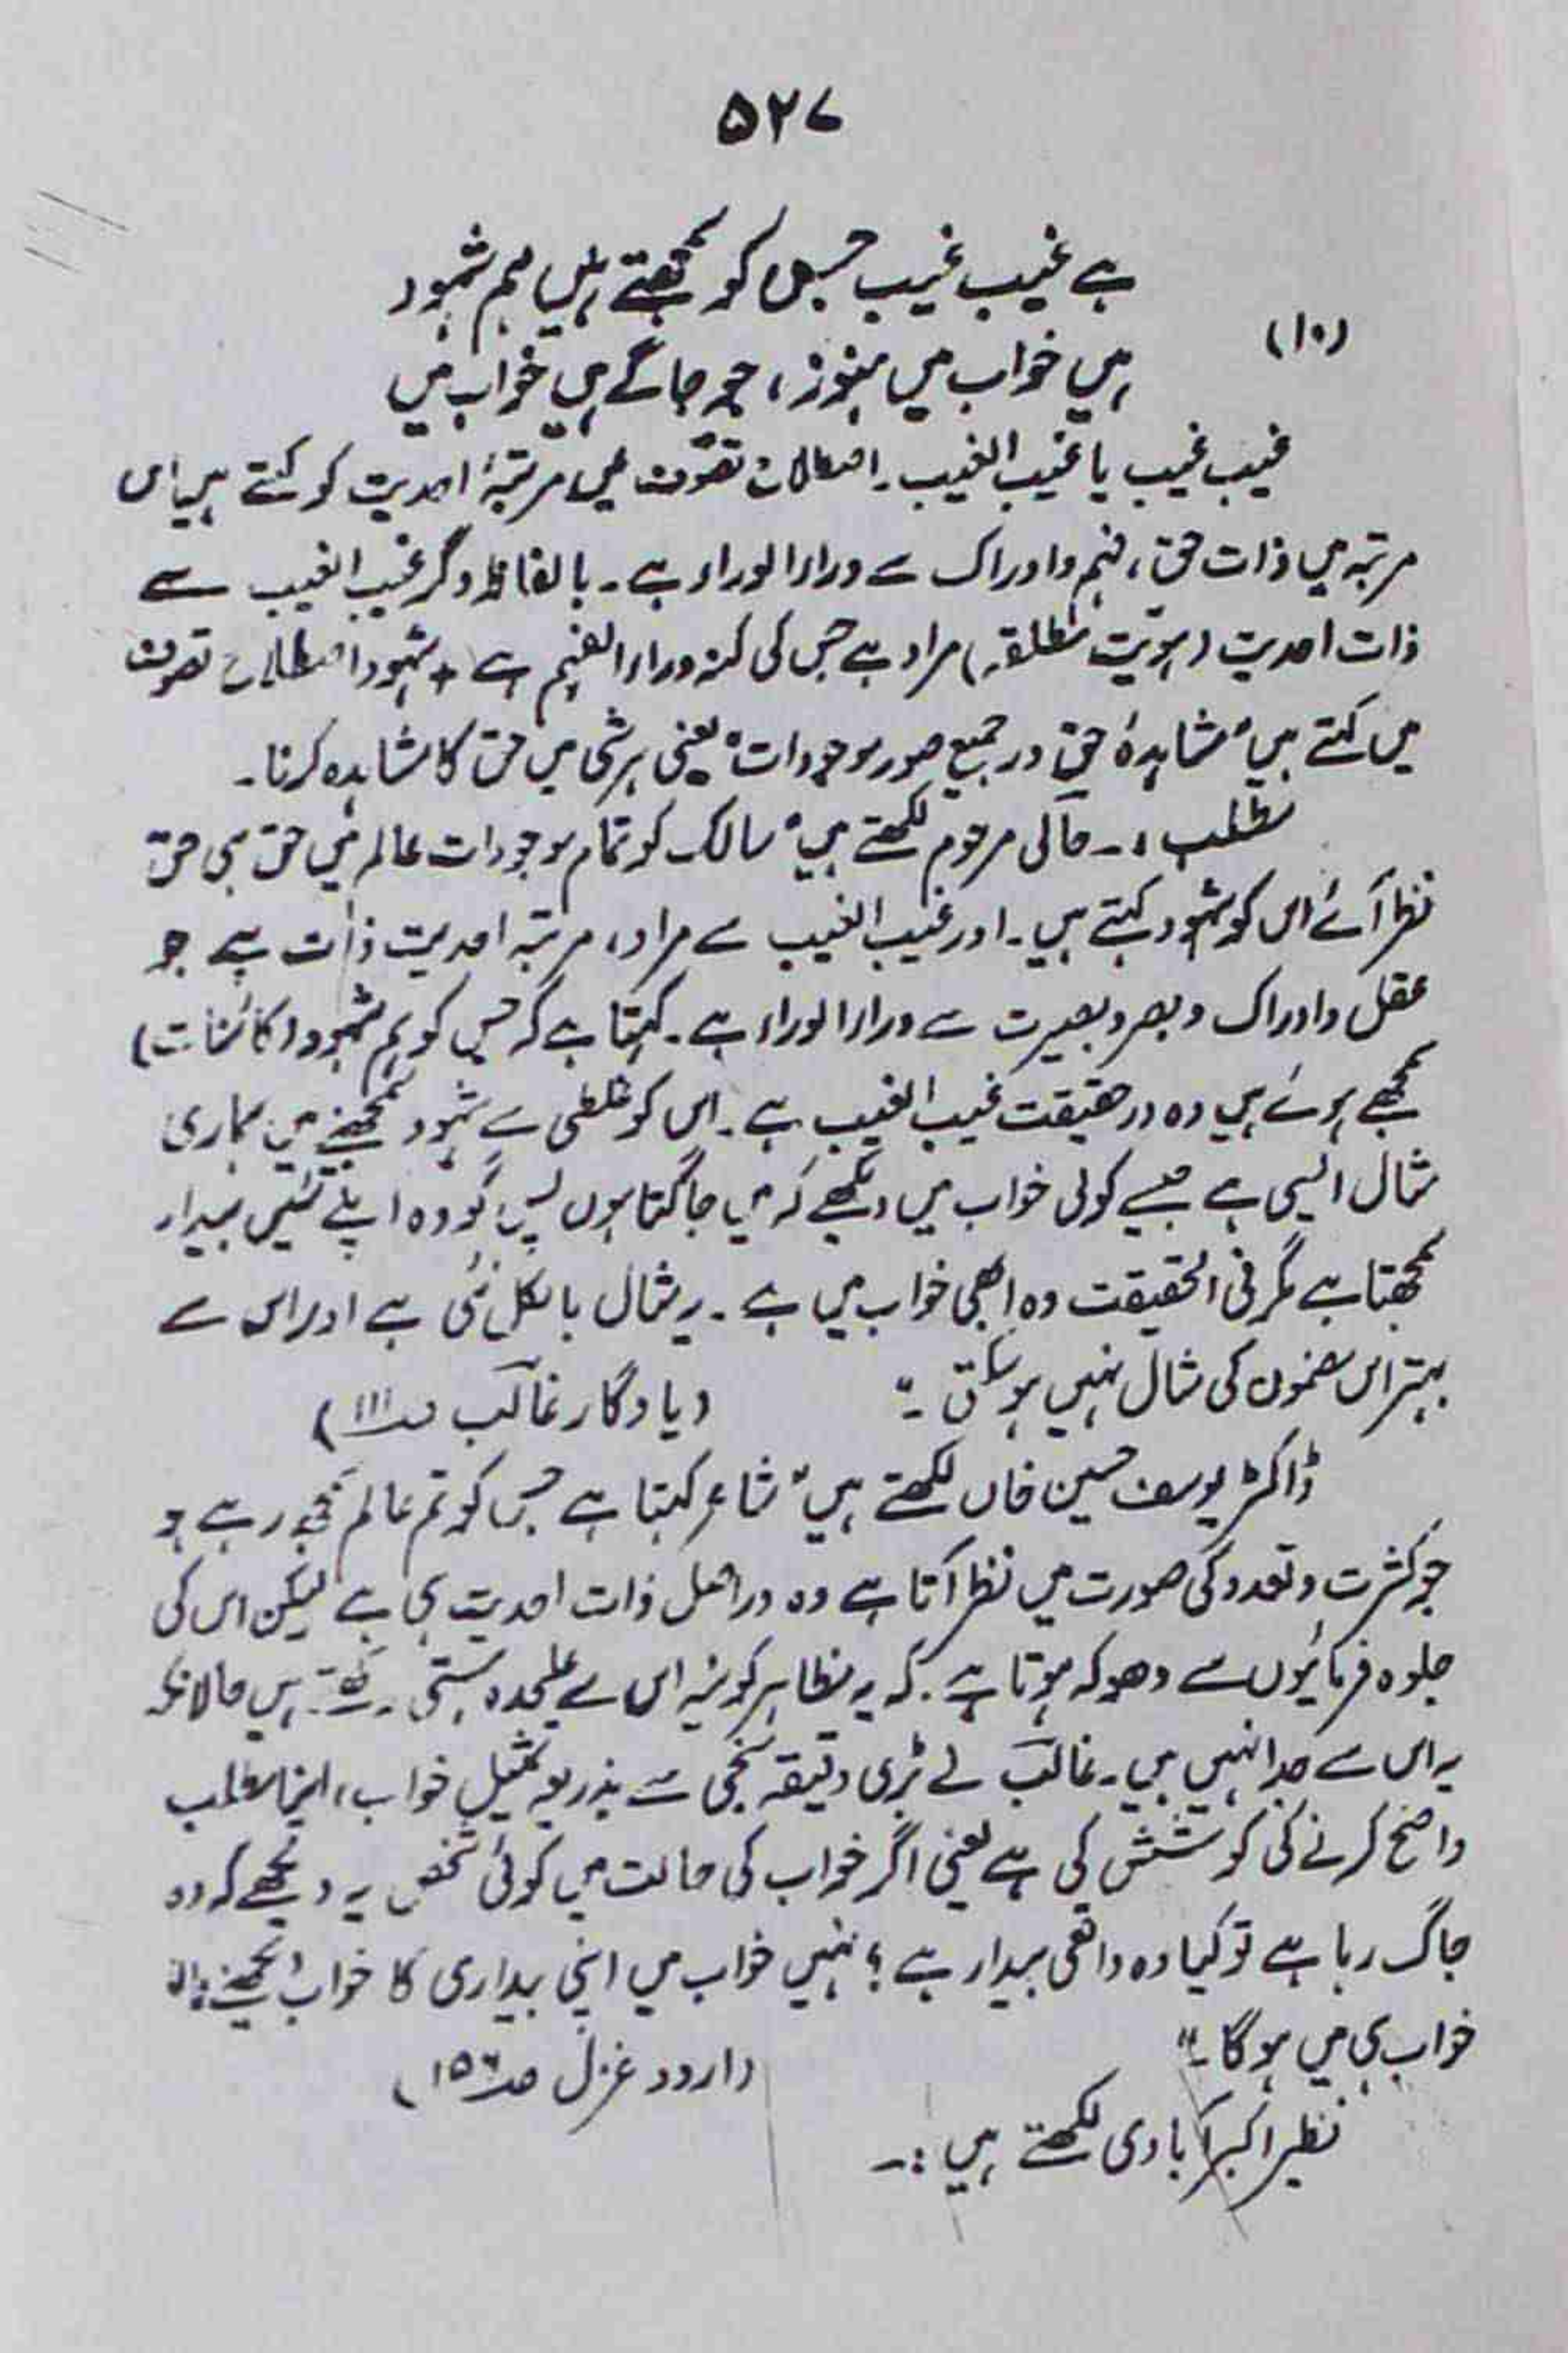 ۵۲۷
ہے غیب غیب جس کو سمجھتے ہیں ہم شہود
(۱۰)
ہیں خواب میں ہنوز، جو جاگے ہیں خواب میں
غیب غیب یا غیب الغیب۔ اصطلاح تصوّف میں مرتبۂ احدیت کو کہتے ہیں اس
مرتبہ میں ذات حق، فہم و ادراک سے وراء الوراء ہے۔ بالفاظ دگر غیب الغیب سے
ذات احدیت (ہویّت مطلقہ) مراد ہے جس کی کنہ وراء الفہم ہے + شہود اصطلاح تصوف
میں کہتے ہیں "مشاہدۂ حق در جمیع صور موجودات" یعنی ہر شی میں حق کا مشاہدہ کرنا۔
مطلب :۔ حالی مرحوم لکھتے ہیں "سالک کو تمام موجودات عالم میں حق ہی حق
نظر آئے اس کو شہود کہتے ہیں۔ اور غیب الغیب سے مراد، مرتبہ احدیت ذات ہے جو
عقل و ادراک و بصر و بصیرت سے وراء الوراء ہے۔ کہتا ہے کہ جس کو ہم شہود (کائنات)
سمجھے ہوئے ہیں وہ در حقیقت غیب الغیب ہے۔ اس کو غلطی سے شہود سمجھنے میں ہماری
مثال ایسی ہے جیسے کوئی خواب میں دیکھے کہ میں جاگتا ہوں پس گو وہ اپنے تئیں بیدار
سمجھتا ہے مگر فی الحقیقت وہ ابھی خواب میں ہے۔ یہ مثال بالکل نئی ہے اور اس سے
بہتر اس مضمون کی مثال نہیں ہو سکتی ۔"
(یادگار غالب صـ۱۱۱)
ڈاکٹر یوسف حسین خاں لکھتے ہیں "شاعر کہتا ہے جس کو تم عالم سمجھ رہے ہو
جو کثرت و تعدد کی صورت میں نظر آتا ہے وہ دراصل ذات احدیت ہی ہے لیکن اس کی
جلوہ فرمائیوں سے دھوکہ ہوتا ہے۔ کہ یہ مظاہر کونیہ اس سے علیحدہ ہستی رکھتے ہیں حالانکہ
یہ اس سے جدا نہیں ہیں۔ غالب نے بڑی دقیقہ سنجی سے بذریعہ تمثیل خواب، اپنا مطلب
واضح کرنے کی کوشش کی ہے یعنی اگر خواب کی حالت میں کوئی شخص یہ دیکھے کہ وہ
جاگ رہا ہے تو کیا وہ واقعی بیدار ہے؟ نہیں خواب میں اپنی بیداری کا خواب
خواب ہی میں ہوگا۔"
(اردو غزل صـ۱۵۶)
نظیر اکبر آبادی لکھتے ہیں :۔